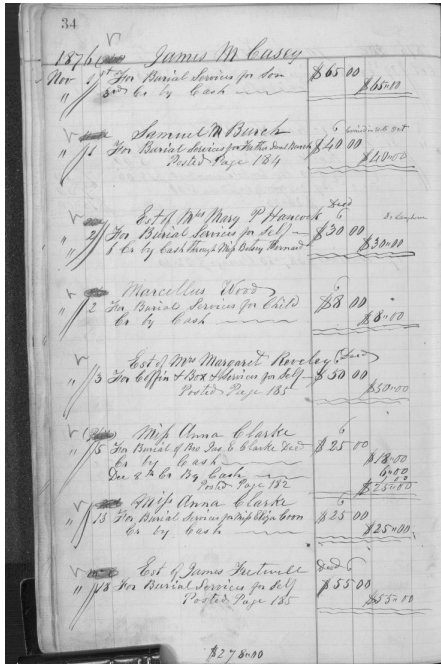 34
1876 James M Casey
Nov 1 1st For Burial Services for son $65 00
" 3rd Cr by Cash $65"00
Samuel M Burch 6
" 1 For Burial Services for Father $40 00
Posted Page 184 $40"00
Est of Mrs Mary P Hancock Decd 6
" 2 For Burial Services for Self $30 00
" 6 Cr by Cash through Miss Betsey $30"00
Marcellus Wood 6
" 2 For Burial Services for Child $8 00
Cr by Cash $8"00
Est of Mrs Margaret Reveley Decd
" 3 For Coffin & Box & Services for Self $50 00
Posted Page 185 $50"00
Miss Anna Clarke 6
" 5 For Burial of Bro Jas C Clarke Decd $25 00
Cr by Cash $18"00
Dec 8th Cr By Cash 6"00
Posted Page 182 $25"00
Miss Anna Clarke 6
" 13 For Burial Services for Miss Eliza Coon $25 00
Cr by Cash $25"00
Est of James Futwell Decd 6
" 18 For Burial Services for Self $55 00
Posted Page 185 $55"00
$278"00